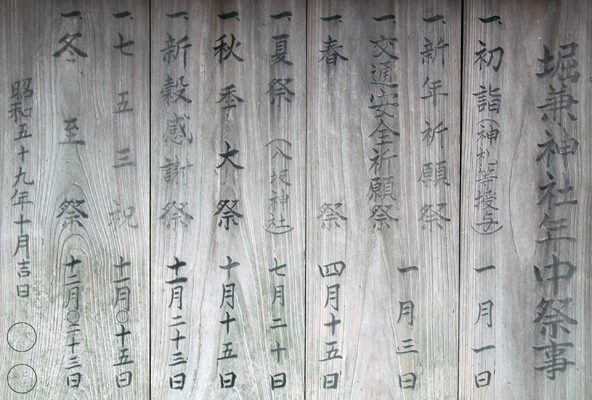 堀兼神社年中祭事
一、初詣（神札等授与）一月一日
一、新年祈願祭
一、交通安全祈願祭
一月三日
一、春祭 四月十五日
一、夏祭（八坂神社）七月二十日
一、秋季大祭 十月十五日
一、新穀感謝祭 十一月二十三日
一、七五三祝 十一月〇十五日
一、冬至祭 十二月〇二十三日
昭和五十九年十月吉日 〇〇